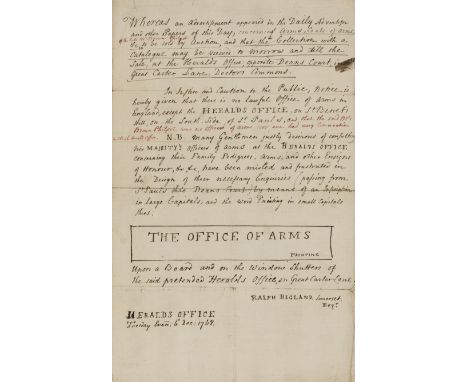 Whereas an Advertisement appeared in the Daily Advertiser
and other Papers of this Day, concerning Arms, Seals of arms,
&c. to be sold by Auction, and that the Collection with a
Catalogue may be viewed to morrow and till the
Sale, at the Heralds Office, opposite Deans Court,
Great Carter Lane, Doctors Commons.
In Justice and Caution to the Public, Notice is
hereby given that there is no lawful Office of arms in
England, except the HERALDS OFFICE, on St. Benets
Hill, on the South Side of St. Paul's, and that the said Mr.
Brian Philpot was no officer of arms nor ever had any Connection
N.B. Many Gentlemen justly desirous of consulting
his MAJESTY's officers of arms at the HERALDS OFFICE
concerning their Family Pedigrees, Arms, and other Ensigns
of Honour, &c. &c. have been misled and frustrated in
the Design of their necessary Enquiries (passing from
St. Pauls thro' Deans Court) by means of an Inscription
in large Capitals, and the word Painting in small Capitals
thus.
THE OFFICE OF ARMS
PAINTING
Upon a Board and on the Window Shutters of
the said pretended Heralds Office, in Great Carter Lane.
RALPH BIGLAND Somerset,
Regr.
HERALDS OFFICE
Tuesday Even. 6 Dec: 1768.